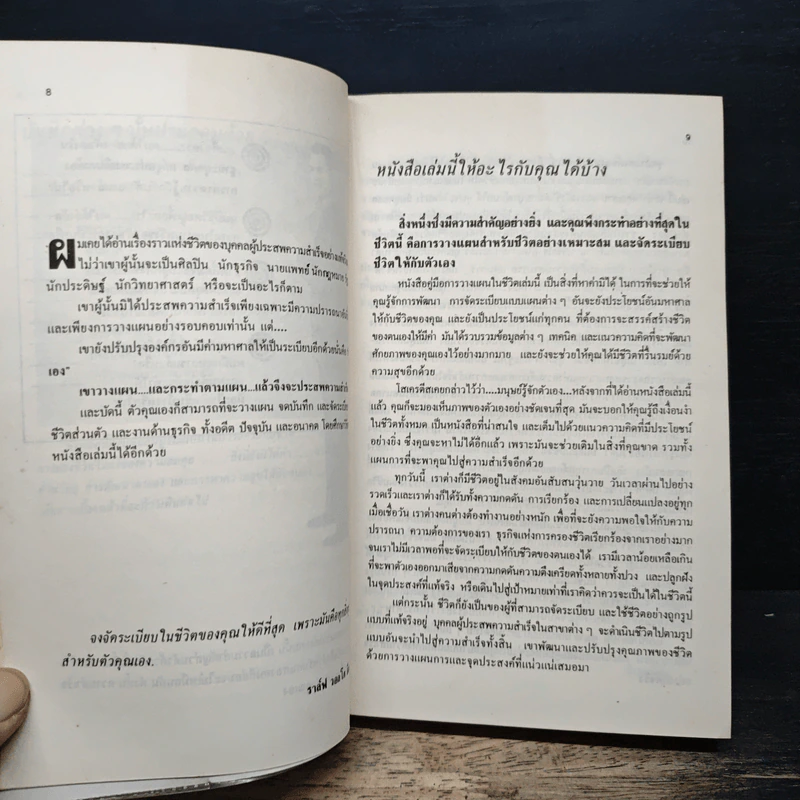 8
ผมเคยได้อ่านเรื่องราวแห่งชีวิตของบุคคลผู้ประสพความสำเร็จอย่าง
ไม่ว่าเขาผู้นั้นจะเป็นศิลปิน นักธุรกิจ นายแพทย์ นักกฎหมาย
นักประดิษฐ์ นักวิทยาศาสตร์ หรือจะเป็นอะไรก็ตาม
เขาผู้นั้นมิได้ประสพความสำเร็จเพียงเฉพาะมีความปรารถนา
และเพียงการวางแผนอย่างรอบคอบเท่านั้น แต่....
เขายังปรับปรุงองค์กรอันมีค่ามหาศาลให้เป็นระเบียบอีกด้วยนั่นคือ
เอง"
เขาวางแผน....และกระทำตามแผน...แล้วจึงจะประสพความสำเร็จ
และบัดนี้ ตัวคุณเองก็สามารถที่จะวางแผน จดบันทึก และจัดระเบียบ
ชีวิตส่วนตัว และงานด้านธุรกิจ ทั้งอดีต ปัจจุบัน และอนาคต โดยศึกษา
หนังสือเล่มนี้ได้อีกด้วย
จงจัดระเบียบในชีวิตของคุณให้ดีที่สุด เพราะมันคือ
สำหรับตัวคุณเอง.
ราล์ฟ วอลโด
9
หนังสือเล่มนี้ให้อะไรกับคุณได้บ้าง
สิ่งหนึ่งซึ่งมีความสำคัญอย่างยิ่ง และคุณพึงกระทำอย่างที่สุดใน
ชีวิตนี้ คือการวางแผนสำหรับชีวิตอย่างเหมาะสม และจัดระเบียบ
ชีวิตให้กับตัวเอง
หนังสือคู่มือการวางแผนในชีวิตเล่มนี้ เป็นสิ่งที่หาค่ามิได้ ในการที่จะช่วยให้
คุณรู้จักการพัฒนา การจัดระเบียบแบบแผนต่าง ๆ อันจะยังประโยชน์อันมหาศาล
ให้กับชีวิตของคุณ และยังเป็นประโยชน์แก่ทุกคน ที่ต้องการจะสรรค์สร้างชีวิต
ของตนเองให้มีค่า มันได้รวบรวมข้อมูลต่าง ๆ เทคนิค และแนวความคิดที่จะพัฒนา
ศักยภาพของคุณเองไว้อย่างมากมาย และยังจะช่วยให้คุณได้มีชีวิตที่รื่นรมย์ด้วย
ความสุขอีกด้วย
โสเครตีสเคยกล่าวไว้ว่า....มนุษย์รู้จักตัวเอง...หลังจากที่ได้อ่านหนังสือเล่มนี้
แล้ว คุณก็จะมองเห็นภาพของตัวเองอย่างชัดเจนที่สุด มันจะบอกให้คุณรู้ถึงเงื่อนงำ
ในชีวิตทั้งหมด เป็นหนังสือที่น่าสนใจ และเต็มไปด้วยแนวความคิดที่มีประโยชน์
อย่างยิ่ง ซึ่งคุณจะหาไม่ได้อีกแล้ว เพราะมันจะช่วยเติมในสิ่งที่คุณขาด รวมทั้ง
แผนการที่จะพาคุณไปสู่ความสำเร็จอีกด้วย
ทุกวันนี้ เราต่างก็มีชีวิตอยู่ในสังคมอันสับสนวุ่นวาย วันเวลาผ่านไปอย่าง
รวดเร็วและเราต่างก็ได้รับทั้งความกดดัน การเรียกร้อง และการเปลี่ยนแปลงอยู่ทุก
เมื่อเชื่อวัน เราต่างคนต่างต้องทำงานอย่างหนัก เพื่อที่จะยังความพอใจให้กับความ
ปรารถนา ความต้องการของเรา ธุรกิจแห่งการครองชีวิตเรียกร้องจากเราอย่างมาก
จนเราไม่มีเวลาพอที่จะจัดระเบียบให้กับชีวิตของตนเองได้ เรามีเวลาน้อยเหลือเกิน
ที่จะพาตัวเองออกมาเสียจากความกดดันความตึงเครียดทั้งหลายทั้งปวง และปลูกฝัง
ในจุดประสงค์ที่แท้จริง หรือเดินไปสู่เป้าหมายเท่าที่เราคิดว่าควรจะเป็นได้ในชีวิตนี้
แต่กระนั้น ชีวิตก็ยังเป็นของผู้ที่สามารถจัดระเบียบ และใช้ชีวิตอย่างถูกรูป
แบบที่แท้จริงอยู่ บุคคลผู้ประสพความสำเร็จในสาขาต่าง ๆ จะดำเนินชีวิตไปตามรูป
แบบอันจะนำไปสู่ความสำเร็จทั้งสิ้น เขาพัฒนาและปรับปรุงคุณภาพของชีวิต
ด้วยการวางแผนการและจุดประสงค์ที่แน่วแน่เสมอมา